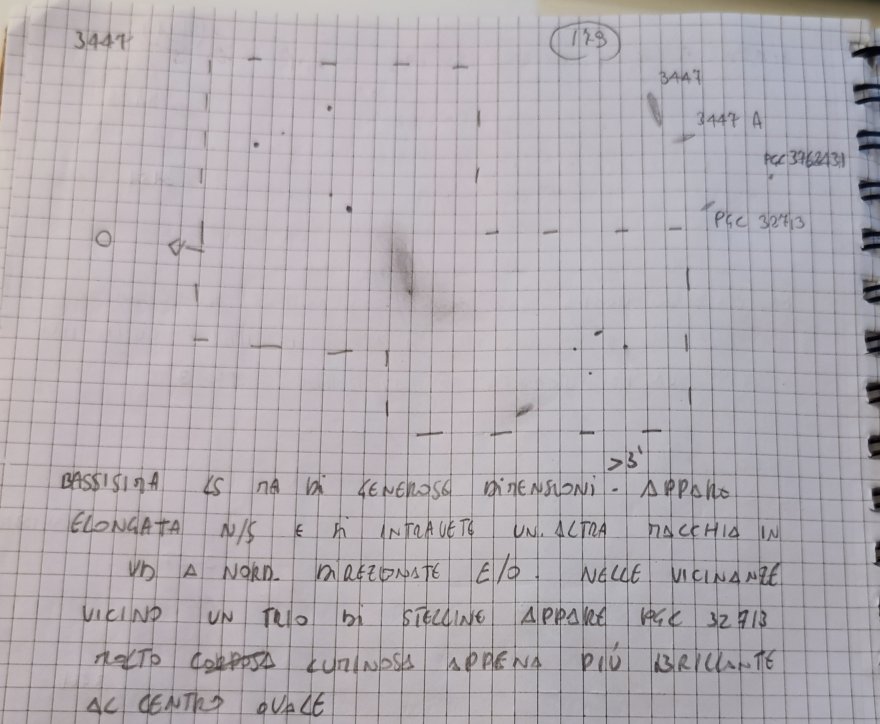 3447
129
3447
3447 A
PGC 3762431
PGC 32713
O
>3'
BASSISIMA LS MA DI GENEROSE DIMENSIONI - APPARE
ELONGATA N/S E SI INTRAVETE UN. ALTRA MACCHIA IN
VD A NORD. DIREZIONATE E/O. NELLE VICINANZE
VICINO UN TRIO DI STELLINE APPARE PGC 32713
MOLTO LUMINOSA APPENA PIÚ BRILLANTE
AL CENTRO OVALE